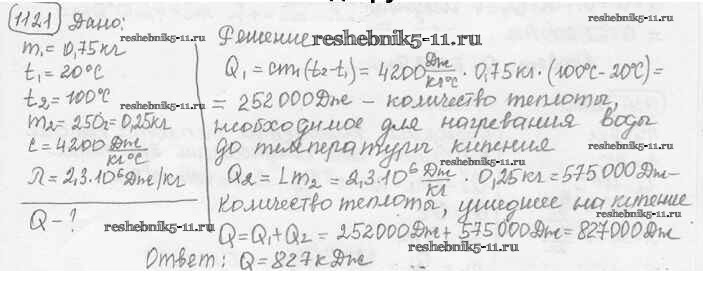 1121 Дано:
m₁ = 0,75 кг
t₁ = 20°C
t₂ = 100°C
m₂ = 250г = 0,25кг
c = 4200 Дж/кг°C
Л = 2,3·10⁶ Дж/кг
Q - ?
Решение
Q₁ = cm₁(t₂-t₁) = 4200 Дж/кг°C · 0,75кг · (100°C - 20°C) =
= 252 000 Дж – количество теплоты,
необходимое для нагревания воды
до температуры кипения
Q₂ = Lm₂ = 2,3·10⁶ Дж/кг · 0,25 кг = 575 000 Дж –
количество теплоты, ушедшее на кипение
Q = Q₁ + Q₂ = 252 000 Дж + 575 000 Дж = 827 000 Дж
Ответ: Q = 827 кДж
reshebnik5-11.ru
reshebnik5-11.ru
reshebnik5-11.ru
reshebnik5-11.ru
reshebnik5-11.ru
reshebnik5-11.ru
reshebnik5-11.ru
reshebnik5-11.ru
reshebnik5-11.ru